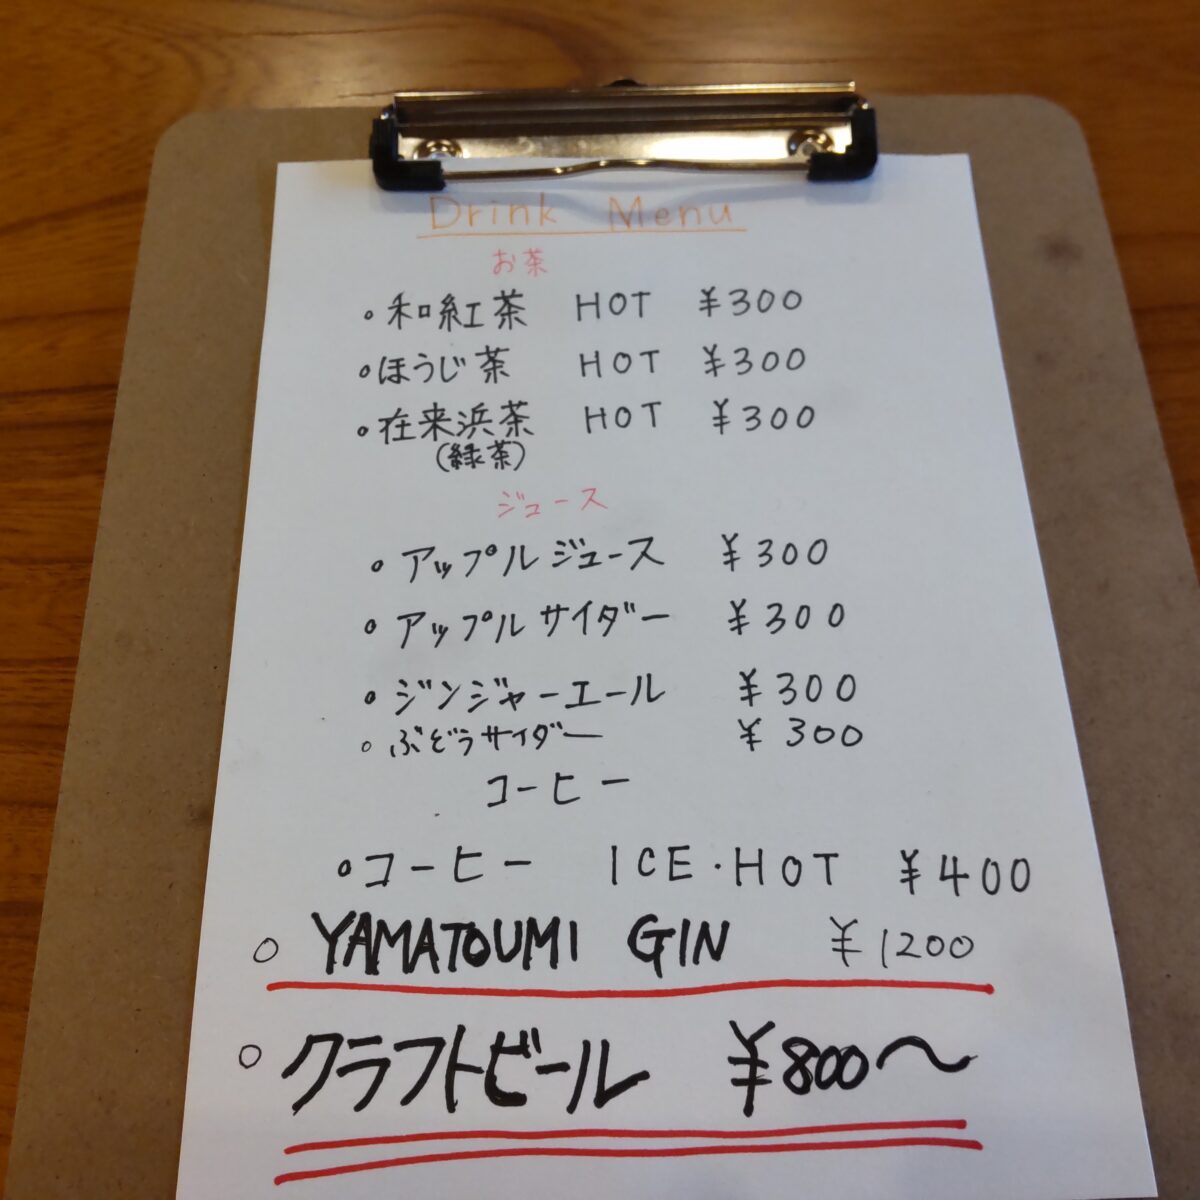 Drink Menu
お茶
。和紅茶 HOT ¥300
。ほうじ茶 HOT ¥300
。在来浜茶 HOT ¥300
(緑茶)
ジュース
。アップルジュース ¥300
。アップルサイダー ¥300
。ジンジャーエール ¥300
。ぶどうサイダー ¥300
コーヒー
。コーヒー ICE・HOT ¥400
○ YAMATOUMI GIN ¥1200
○ クラフトビール ¥800〜